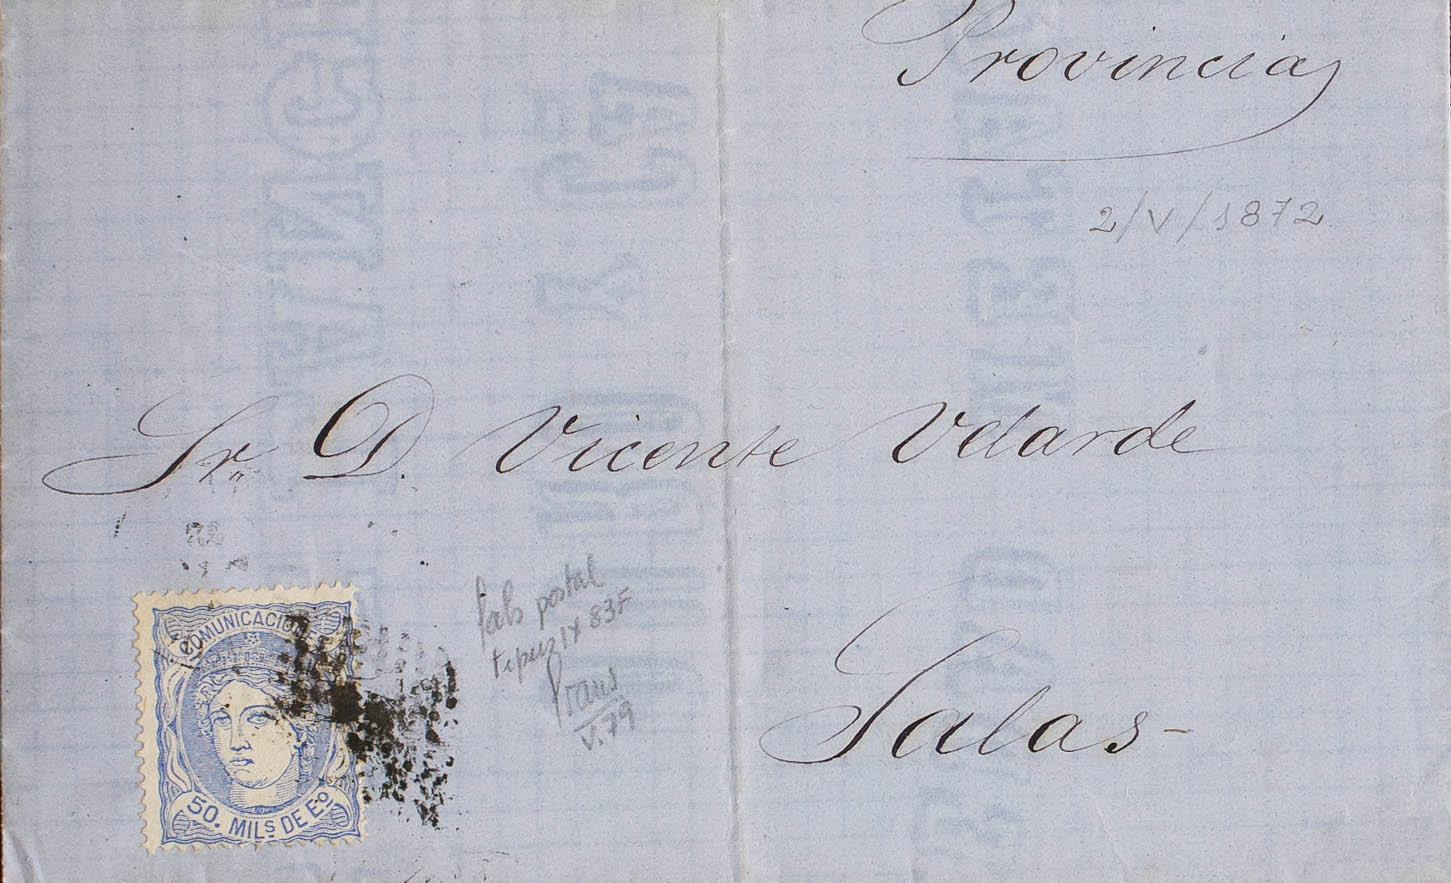 Provincias
2/V/1872
Sr. D. Vicente Velarde
Salas-
COMUNICACIONES
50. MILS DE EO
falso postal
tipo IX 83F
Graus
V.79